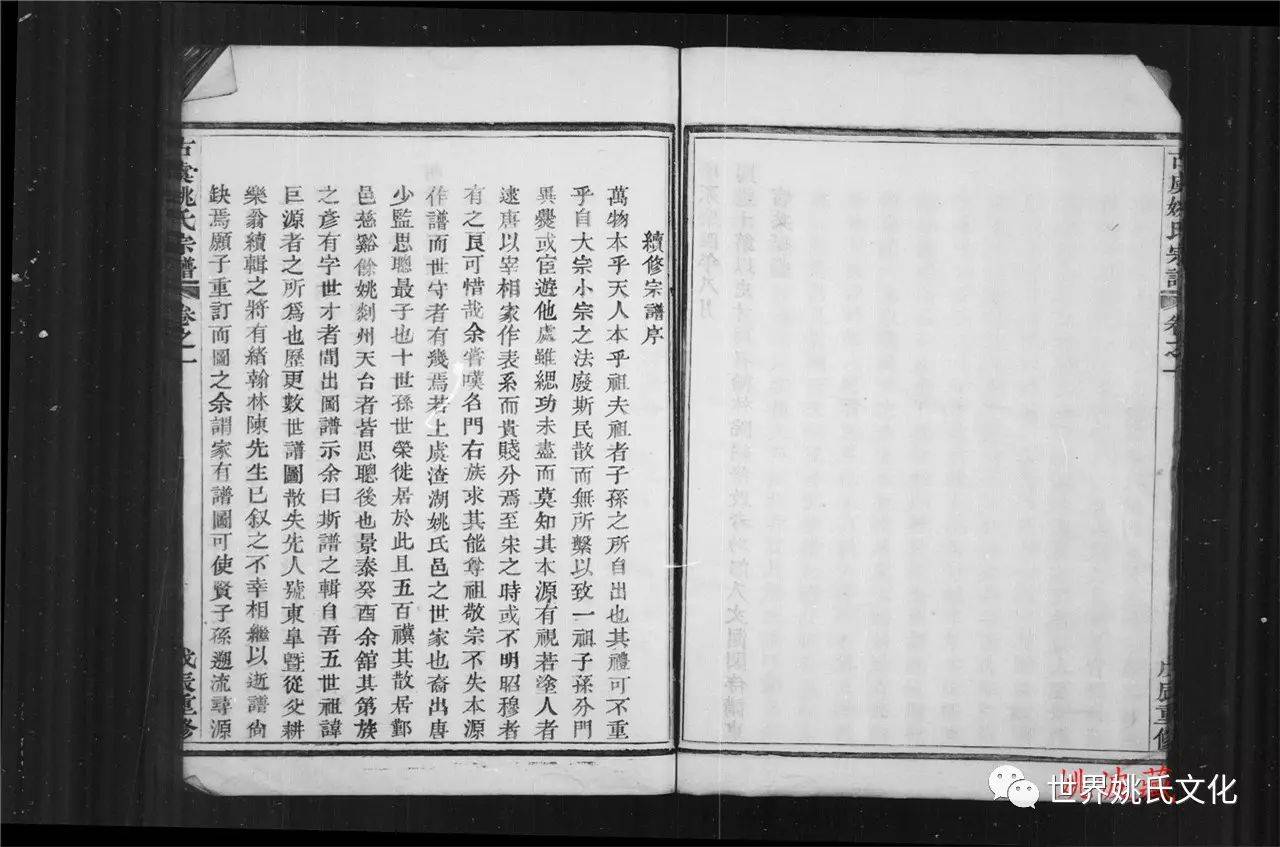 古虞姚氏宗譜
卷之一
戊辰重修
續修宗譜序
萬物本乎天人本乎祖夫祖者子孫之所自出也其禮可不重
乎自大宗小宗之法廢斯民散而無所繫以致一祖子孫分門
異爨或宦遊他處雖緦功未盡而莫知其本源有視若塗人者
逮唐以宰相家作表系而貴賤分焉至宋之時或不明昭穆者
有之良可惜哉余嘗嘆名門右族求其能尊祖敬宗不失本源
作譜而世守者有幾焉若上虞渣湖姚氏邑之世家也裔出唐
少監思聰最子也十世孫世榮徙居於此且五百禩其散居鄞
邑慈谿餘姚剡州天台者皆思聰後也景泰癸酉余舘其第族
之彥有字世才者間出圖譜示余曰斯譜之輯自吾五世祖諱
巨源者之所為也歷更數世譜圖散失先人號東皐暨從父耕
樂翁續輯之將有緒翰林陳先生已叙之不幸相繼以逝譜尙
缺焉願子重訂而圖之余謂家有譜圖可使賢子孫遡流尋源
古虞姚氏宗譜
卷之一
戊辰重修
姚波藏
世界姚氏文化